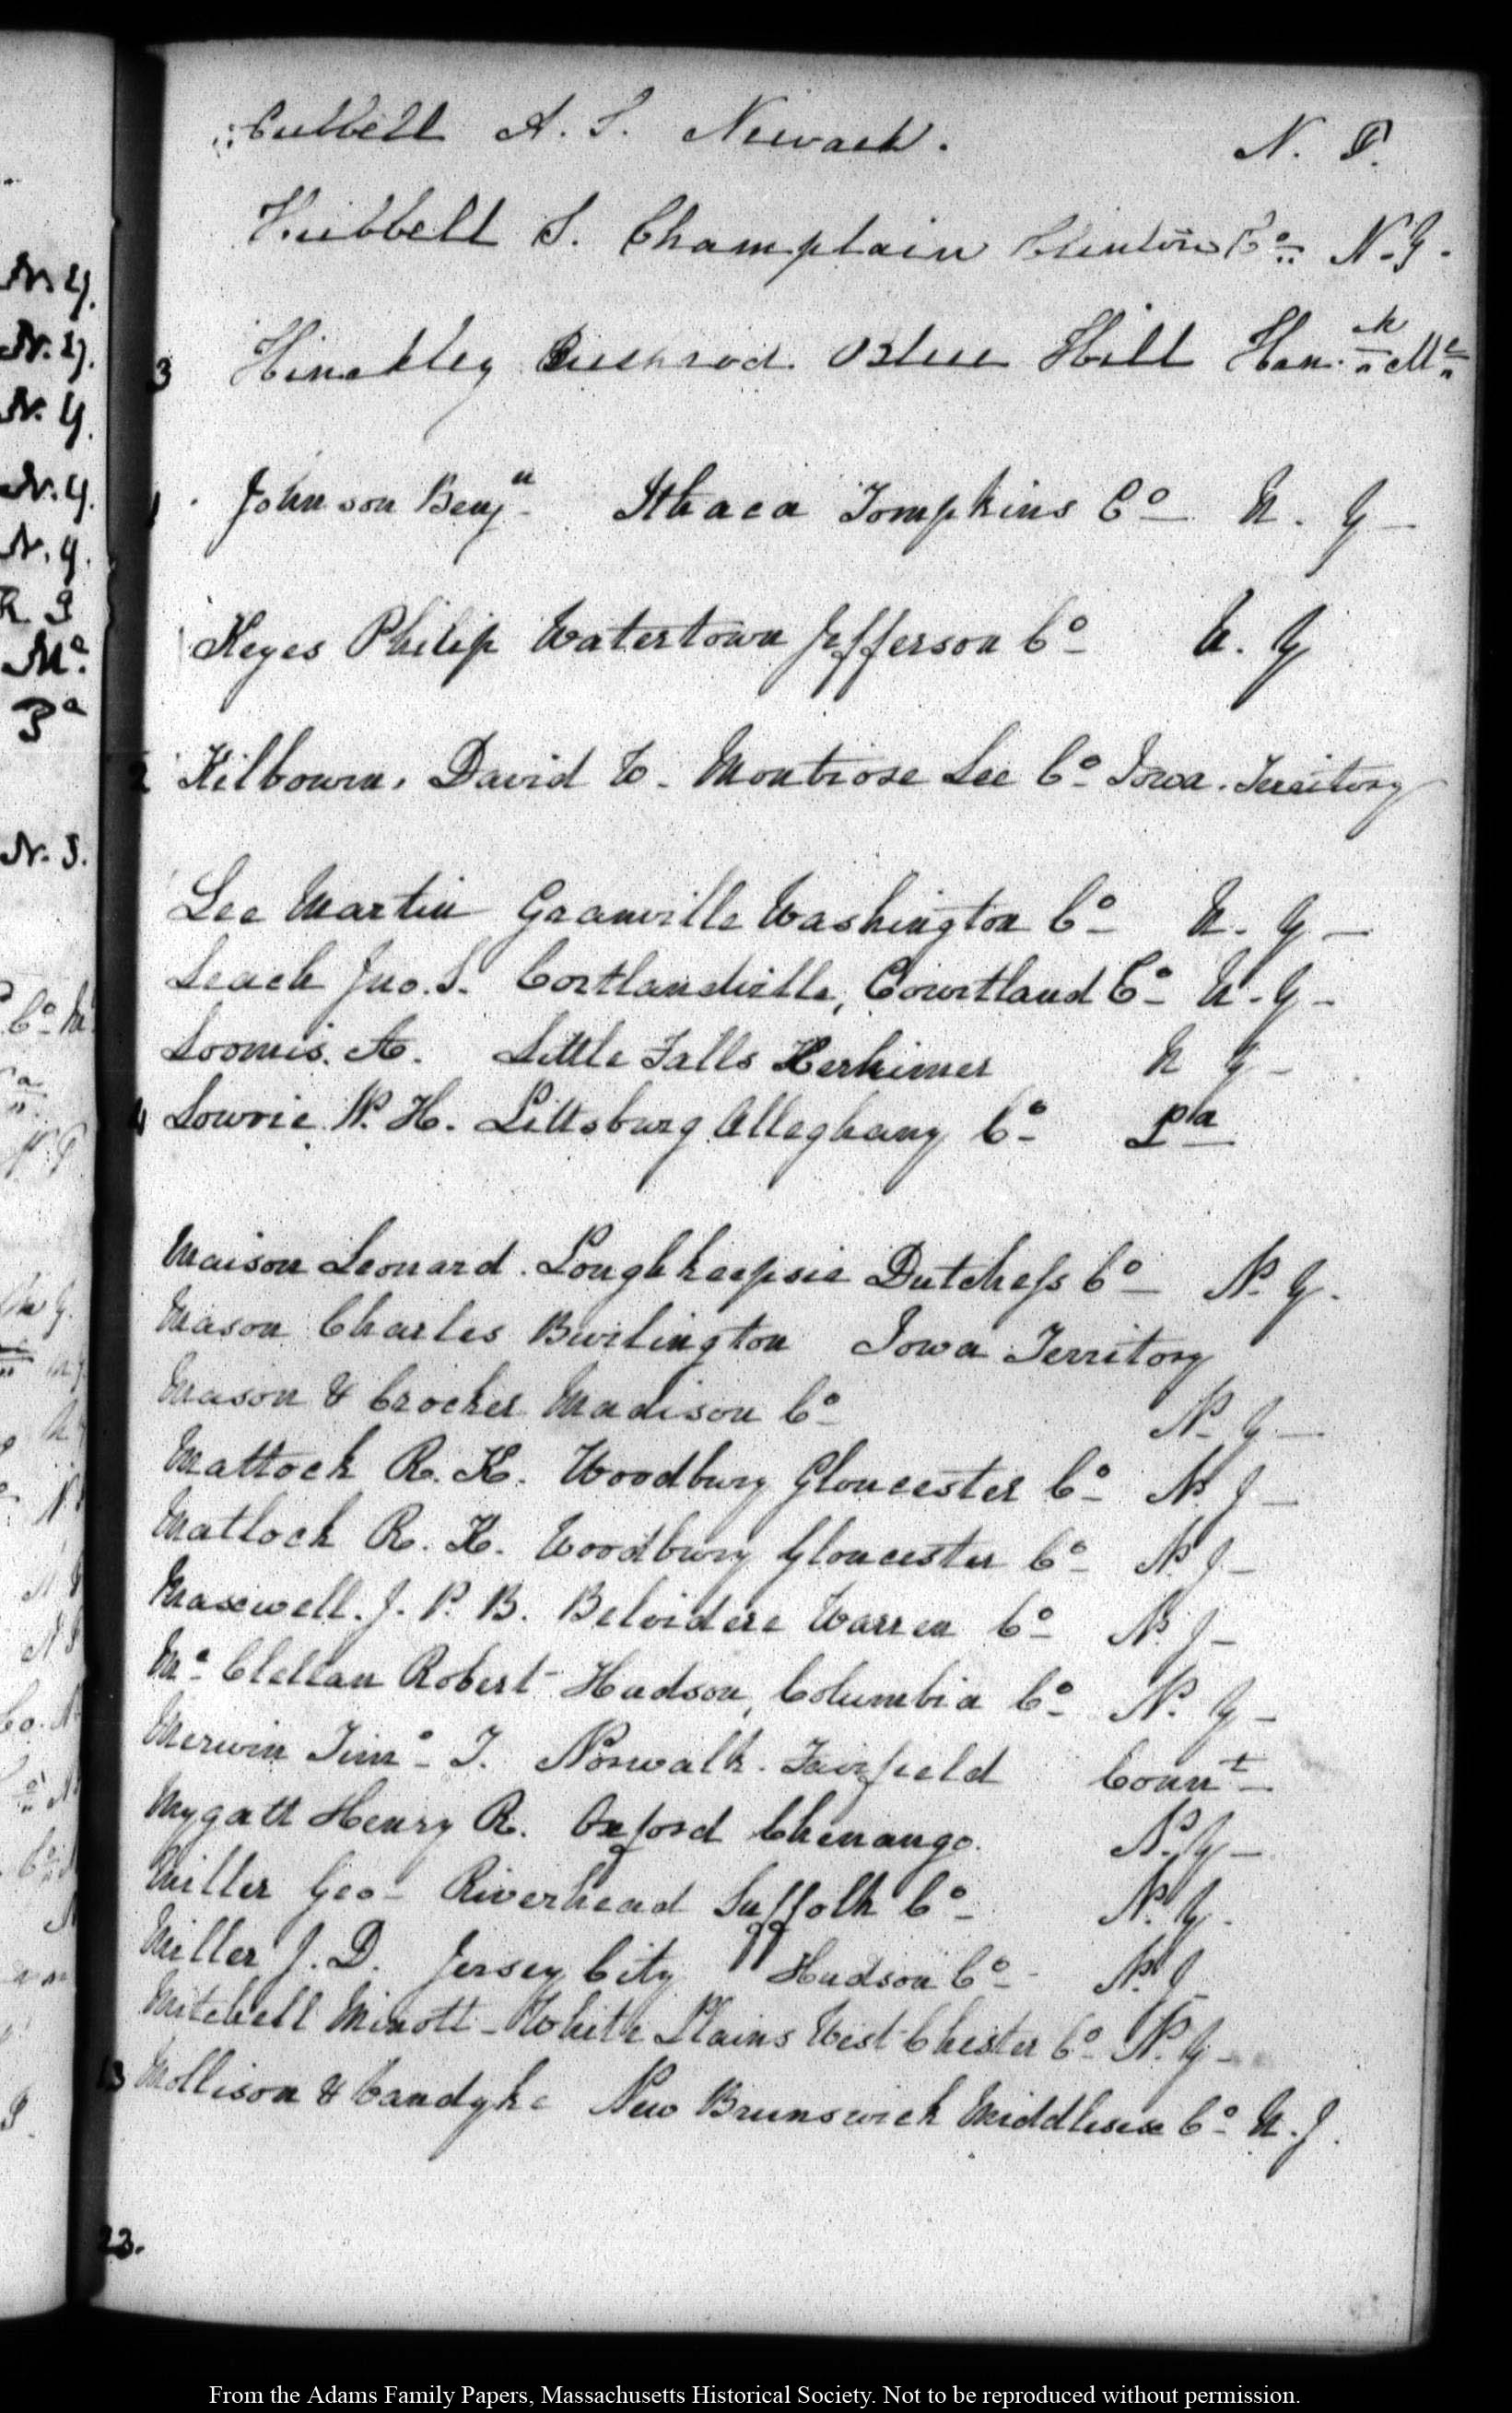 Hubbell A. S. Newark. N. J.
Hubbell S. Champlain Clinton Co N. Y.
3 Hinckley Bushrod Blue Hill Han.k Me
1 Johnson Benjn Ithaca Tompkins Co N. Y
Keyes Philip Watertown Jefferson Co N. Y
2 Kilbourn, David W. Montrose Lee Co Iowa. Territory
Lee Martin Granville Washington Co N. Y
Leach Jno. S. Cortlandville, Courtland Co N. Y
Loomis. A. Little Falls Herkimer N Y
4 Lowrie W. H. Pittsburg Alleghany Co Pa
Maison Leonard. Poughkeepsie Dutchess Co N. Y.
Mason Charles Burlington Iowa Territory
Mason & Crocker Madison Co N. Y
Mattock R. K. Woodbury Gloucester Co N. J
Matlock R. K. Woodbury Gloucester Co N. J
Maxwell. J. P. B. Belvidere Warren Co N. J
Mc Clellan Robert Hudson, Columbia Co N. Y
Merwin Timo T. Norwalk. Fairfield Connt
Mygatt Henry R. Oxford Chenango. N. Y
Miller Geo Riverhead Suffolk Co N. Y.
Miller J. D. Jersey City Hudson Co N. J
Mitchell Minott White Plains West Chester Co N. Y
13 Mollison & Vandyke New Brunswick Middlesex Co N. J.
23.
From the Adams Family Papers, Massachusetts Historical Society. Not to be reproduced without permission.